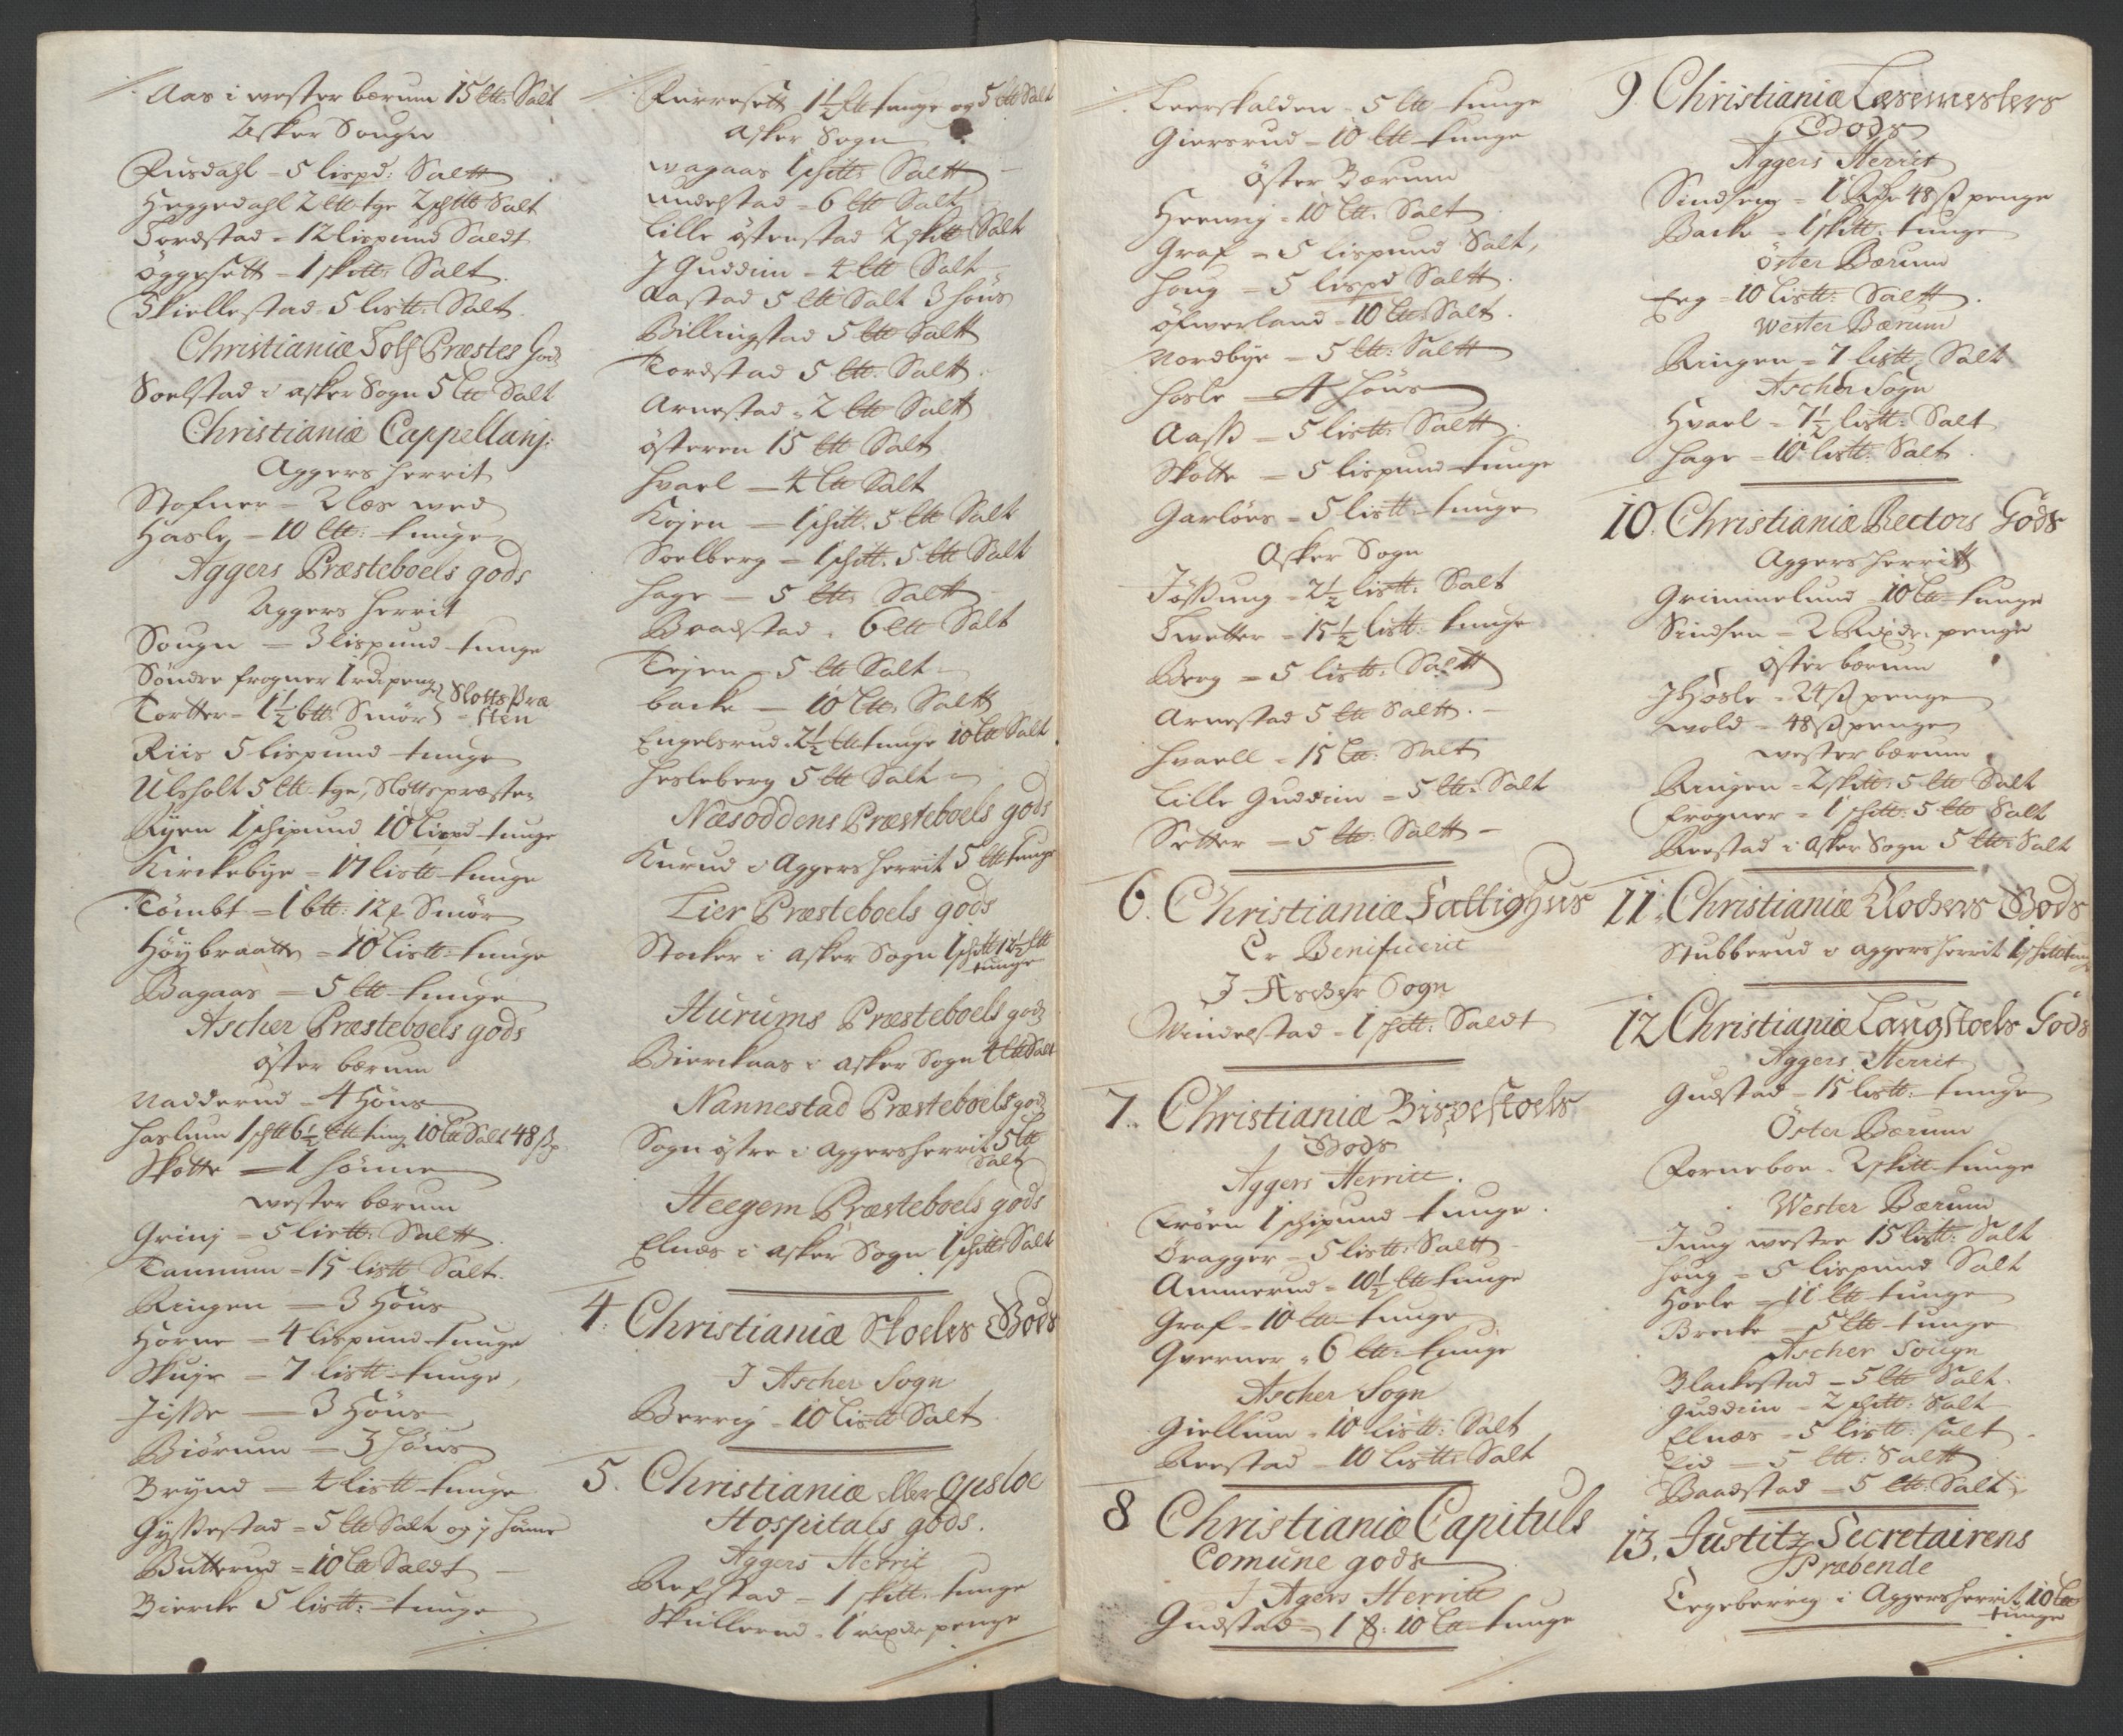 Aas i wester bærum 15 lt: Salt
Asker Sougn
Rusdahl - 5 lispd: Saltt
Heggedahl 2 lt tge 2 schtt Salt
Tordstad - 12 lispund Saldt
Øggesett - 1 skitt: Salt.
Skiellestad - 5 listt: Salt
Christianiæ Tolf Præstes Gods
Soelstad i asker Sogn 5 lt Salt
Christianiæ Cappellanj:
Aggers herrit
Stofner - 2 læs wed
Hasle - 10 lt: tunge
Aggers Præsteboels gods
Aggers herrit
Sougn - 3 lispund tunge
Søndre frogner 1 rd penge
Tortter - 1½ btt: Smør Slotts Præ
sten
Riis 5 lispund tunge
Ulsholt 5 lt tge, Slottspræsten
Ryen 1 schipund 10 lispd tunge
Kirckebye - 17 listt tunge
Tømbt - 1 btt: 12 Smør
Høybraatte - 10 listt tunge
Bagaas - 5 lt tunge
Ascher Præsteboels gods
øster bærum
Nadderud - 4 Høns
Haslum 1 schtt 6½ lt tung 10 lt Salt 48 ß p.
Skotte - 1 hønne
wester bærum
Grinj - 5 listt: Saltt
Tannum - 15 listt Salt.
Ringen - 3 Høns
Horne - 4 lispund tunge
Skuje - 7 listt tunge,
Jisse - 3 Høns
Biørum - 3 høns
Brynd - 4 listt tunge
Gyssestad - 5 lt Salt og j hønne
Butterud - 10 lt Saldt
Biercke 5 listt: tunge
Furresett 1½ lt tunge og 5 lt Salt
asker Sogn
wagaas 1 schtt: Saltt
undelstad - 6 lt Salt
Lille østenstad 2 skitt Salt
J Guddim - 4 lt Salt
Aastad 5 lt Salt 3 høns
Billingstad 5 lt Saltt
Tordstad 5 lt Saltt.
Arnestad - 2 lt Saltt
østeren 15 lt Salt
Hvael - 4 lt Salt
Kojen - 1 schtt. 5 lt Salt
Soelberg - 1 schtt. 5 lt Salt
Hage - 5 lt Saltt
Braadstad - 6 lt Salt
Tejen - 5 lt Salt
backe - 10 lt Saltt
Engelsrud - 2½ lt tunge 10 lt Salt
Hesleberg 5 lt Salt
Næsoddens Præsteboels gods
Kurud i Aggers herrit 5 lt tunge
Lier Præsteboels gods
Stocker i asker Sogn 1 schtt 12½ lt
tunge
Hurums Præsteboels gods
Bierckaas i asker Sogn 4 lt Salt
Nannestad Præsteboels gods
Sogn østre i Aggersherrit 5 lt
Salt
Heegem Præsteboels gods
Elnæs i asker Sogn 1 schtt: Salt
4. Christianiæ Skoeles Gods
J Ascher Sogn
Berrig - 10 listt Salt
5. Christianiæ eller Opsloe
Hospitals gods.
Aggers Herrit
Refstad - 1 skitt. tunge
Skullerud - 1 rixdr penge
Leerskalden - 5 lt tunge
Giersrud - 10 lt tunge
Øster Bærum
Herwig - 10 lt. Salt
Graf - 5 lispund Salt,
Houg - 5 lispd Saltt.
øfwerland - 10 lt Salt.
Nordbye - 5 lt: Saltt
Hosle - 4 høns
Aass - 5 listt: Saltt.
Skotte - 5 lispund tunge
Garløes - 5 listt tunge
Asker Sogn
Jøssung - 2½ listt: Salt
Twetter - 15½ listt tunge
Berg - 5 listt: Saltt
Arnestad 5 lt Saltt.
Hvaell - 15 lt: Salt
Lille Guddim - 5 lt: Salt
Setter - 5 lt: Saltt
6. Christianiæ Fattighus
Er Benificerit
J Ascher Sogn
Windelstad - 1 schtt: Saldt
7. Christianiæ Bispestoels
Gods
Aggers Herritt.
Frøen 1 schipund tunge.
Øragger - 5 listt: Saltt
Ammerud - 10½ lt tunge
Graf - 10 lt tunge
Qverner - 6 lt tunge
Ascher Sogn
Giellum - 10 listt: Salt
Reestad - 10 listt: Salt
8 Christianiæ Capituls
Comune gods
J Agers Herritt
Gudstad - 1 10 lt tunge
9. Christianiæ Læsemesters
Gods
Aggers Herrit
Sindsen - 1 Rdr 48 ß penge
Backe - 1 skitt: tunge
øster Bærum
Eeg - 10 listt: Saltt.
Wester Bærum
Ringen - 7 listt Salt
Ascher Sogn
Hvael - 7½ listt: Salt
Hage - 10 listt: Salt.
10. Christianiæ Rectors Gods
Aggers herritt
Grimmelund - 10 lt tunge
Sindsen - 2 Rixdr. penge
øster bærum
J Hosle - 24 ß penge
wold - 48 ß penge
wester bærum
Ringen - 2 skitt: 5 lt Salt
Frogner - 1 schtt: 5 lt Salt
Reestad i Asker Sogn 5 lt: Salt
11. Christianiæ Klockers Gods
Stubberud i aggers herrit 1 schtt tunge
12 Christianiæ Laugstoels Gods
Aggers Herrit
Gudstad - 15 listt: tunge
Öster Bærum
Forneboe - 2 skitt tunge
Wester Bærum
Jung westre 15 listt: Salt
Houg - 5 lispund Salt
Hoele - 11 lt tunge
Brecke - 5 lt tunge
Ascher Sougn
Blackestad - 5 lt Salt.
Guddim - 2 schtt: Salt
Elnæs - 5 listt: salt.
Eid - 5 lt: Saltt
Baadstad - 5 lt. Salt
13. Justitz Secretairens
Præbende
Tegeberrig i Aggersherrit 10 lt
tunge